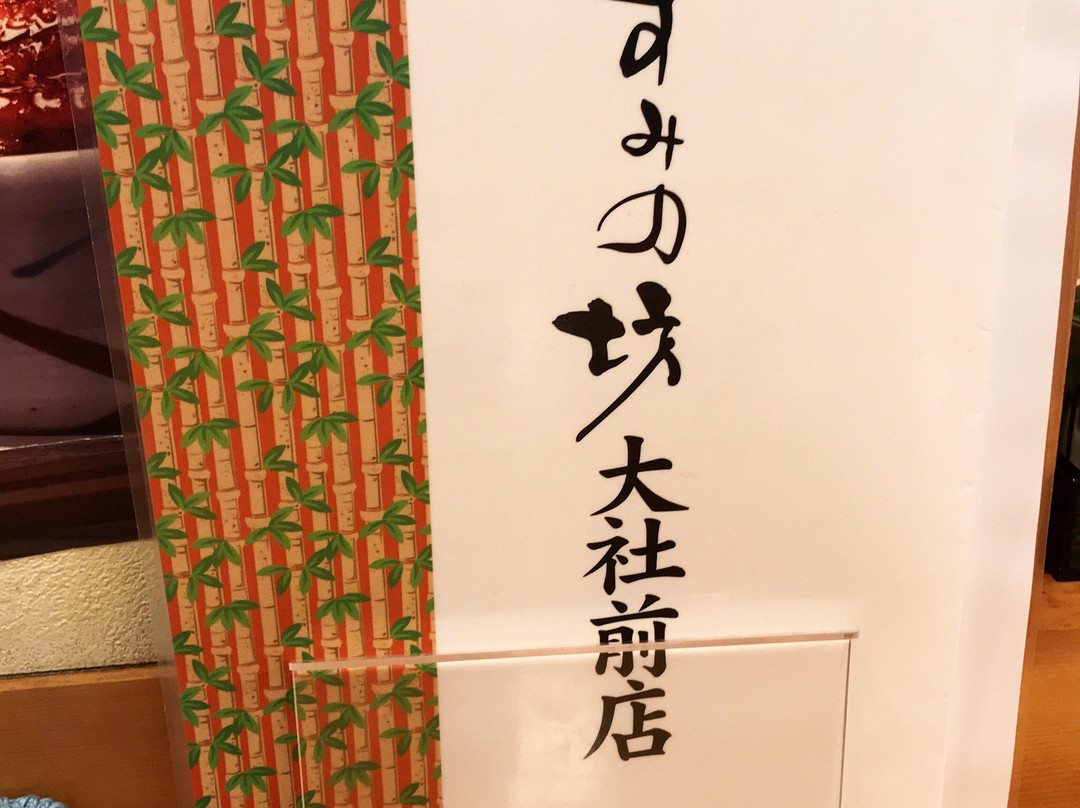 すみの坊大社前店